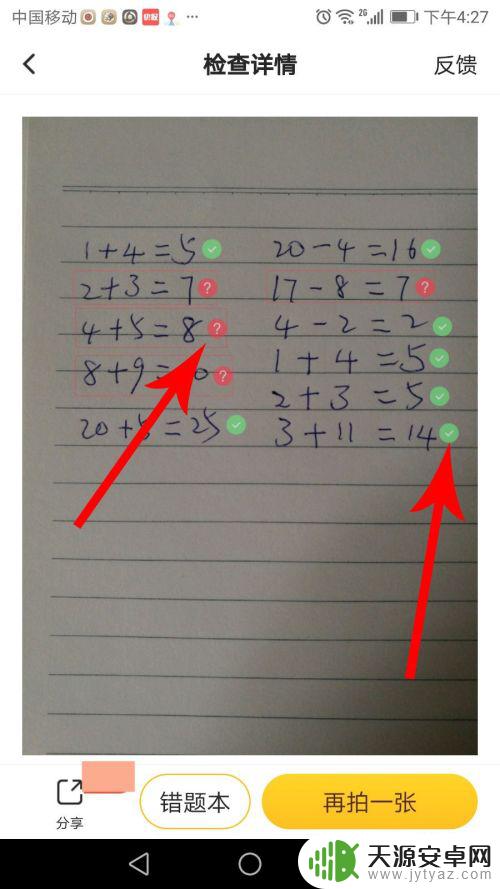 中国移动 ··· 2G 下午4:27
检查详情 反馈
1+4=5 20-4=16
2+3=7 ? 17-8=7 ?
4+5=8 ? 4-2=2
8+9= 0 ? 1+4=5
2+3=5
20+5=25 3+11=14
分享 错题本 再拍一张
天源安卓网
www.jytyaz.com